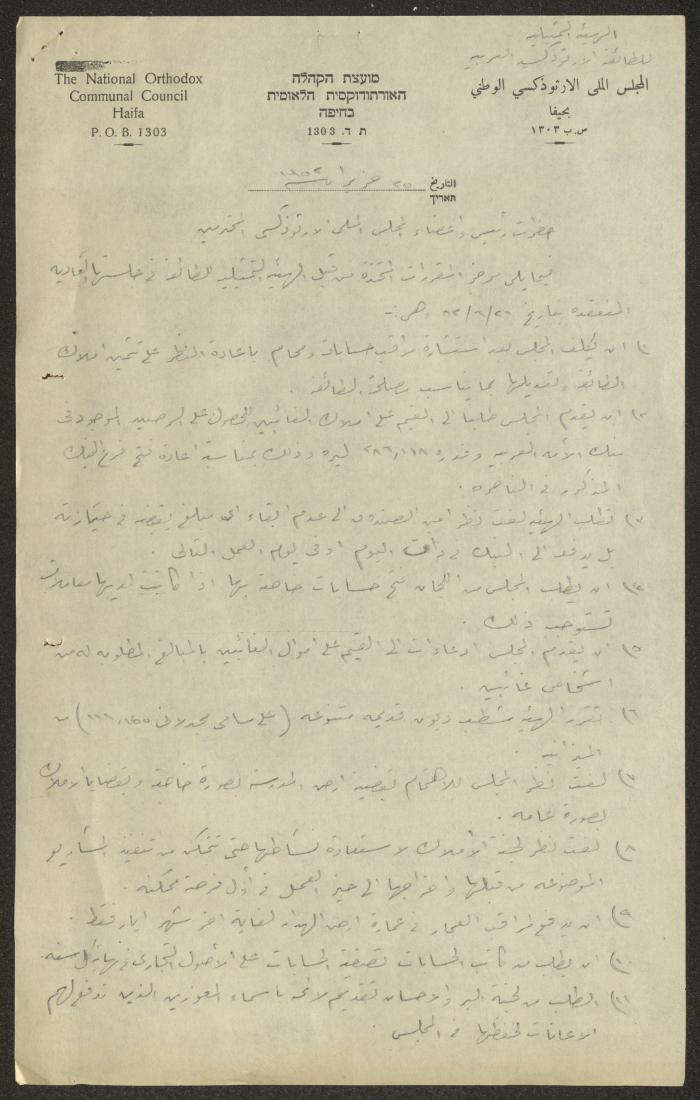 الهيئة التمثيلية
للطائفة الارثوذكسية العربية
The National Orthodox
Communal Council
Haifa
P. O. B. 1303
מועצת הקהלה
האורתודוקסית הלאומית
בחיפה
ת ד. 1303
المجلس الملي الارثوذكسي الوطني
بحيفا
ص.ب ١٣٠٣
التاريخ ٢٥ حزيران سنة ١٩٥٢
תאריך
حضرات رئيس واعضاء المجلس الملي الارثوذكسي المحترمين
فيما يلي موجز المقررات المتخذة من قبل الهيئة التمثيلية للطائفة في جلستها العادية
المنعقدة بتاريخ ٥٢/٦/٢٠ وهي:-
١) ان يكلف المجلس بعد استشارة مراقب حسابات ومحام باعادة النظر على تثمين املاك
الطائفة وتعديلها بما يناسب مصلحة الطائفة .
٢) ان يقدم المجلس طلباً الى القيم على املاك الغائبين للحصول على الرصيد الموجود في
بنك الأمة العربية وقدره ٢٨٦,١١٨ ليرة وذلك بمناسبة اعادة فتح فرع البنك
المذكور في الناصرة .
٣) تطلب الهيئة لفت نظر امين الصندوق الى عدم ابقاء اي مبلغ يقبضه في حيازته
بل يدفعه الى البنك في ذات اليوم او في يوم العمل التالي .
٤) ان يطلب المجلس من اللجان فتح حسابات خاصة بها اذا كانت لديها معاملات
تستوجب ذلك .
٥) ان يقدم المجلس ادعاءات الى القيم على اموال الغائبين بالمبالغ المطلوبة له من
اشخاص غائبين .
٦) تقرر الهيئة شطب ديون قديمة متنوعة (على سامي
الميزانية .
٧) لفت نظر المجلس للاهتمام بقضية ارض المدرسة بصورة خاصة وبقضايا الاملاك
بصورة عامة .
٨) لفت نظر لجنة الأملاك لاستعادة نشاطها حتى تتمكن من تنفيذ المشاريع
الموضوعة من قبلها واخراجها الى حيز العمل في أول فرصة ممكنة .
٩) ان يدفع لمراقب العمار في عمارة ارض الهدار لغاية اخر شهر ايار فقط .
١٠) ان يطلب من كاتب الحسابات تصفية الحسابات على الأصول التجاري في نهاية كل سنة .
١١) الطلب من لجنة البر والاحسان تقديم لائحة باسماء المعوزين الذين تدفع لهم
الاعانات لحفظها في المجلس .